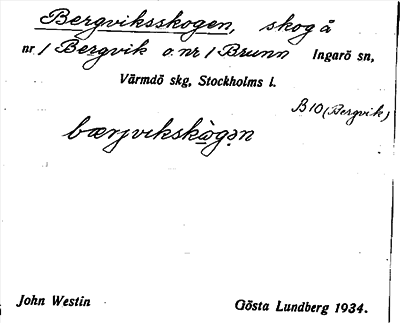 Bergviksskogen, skog å
nr 1 Bergvik o. nr 1 Brunn Ingarö sn,
Värmdö skg, Stockholms l.
B10 (Bergvik)
bærjvikskògən
John Westin Gösta Lundberg 1934.